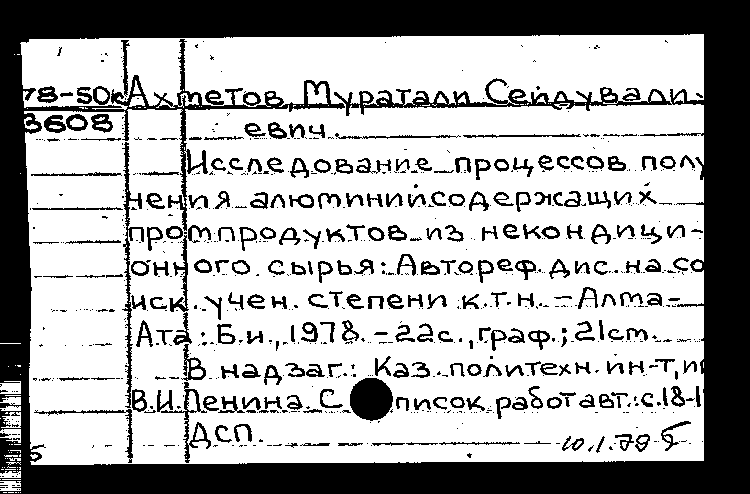 78-50к Ахметов, Муратали Сейдували-
3608 евич.
Исследование процессов полу
чения алюминийсодержащих
промпродуктов из некондици-
онного сырья: Автореф. дис. на со
иск. учен. степени к.т.н. - Алма-
Ата: Б.и., 1978. - 22с., граф.; 21cm.
В надзаг.: Каз. политехн. ин-т, и
В.И. Ленина. С писок работ авт.: с.18-1
ДСП.
10.1.79